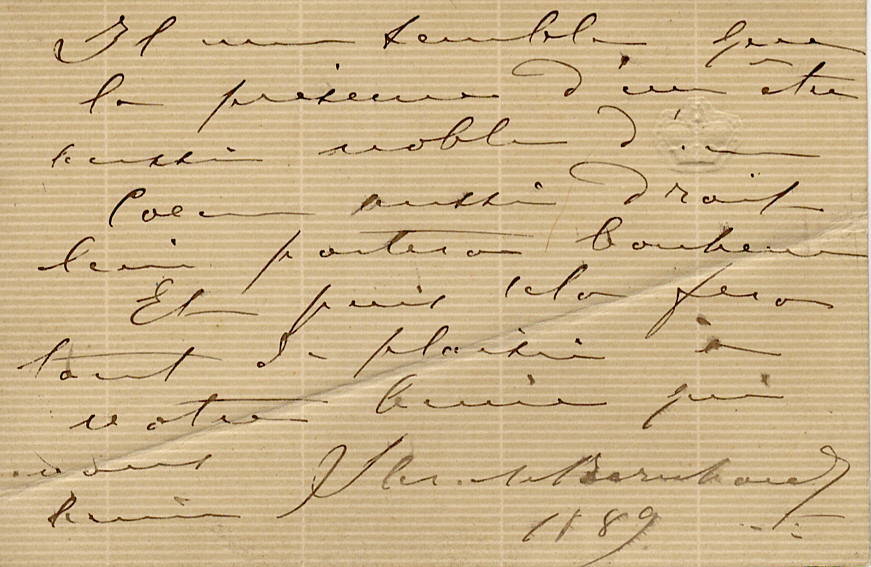 Il me semble que
la présence d'un être
aussi noble d'un
Coeur aussi droit
lui portera bonheur
Et puis cela fera
tant de plaisir à
votre amie qui
vous
aime Sarah Bernhardt
1889